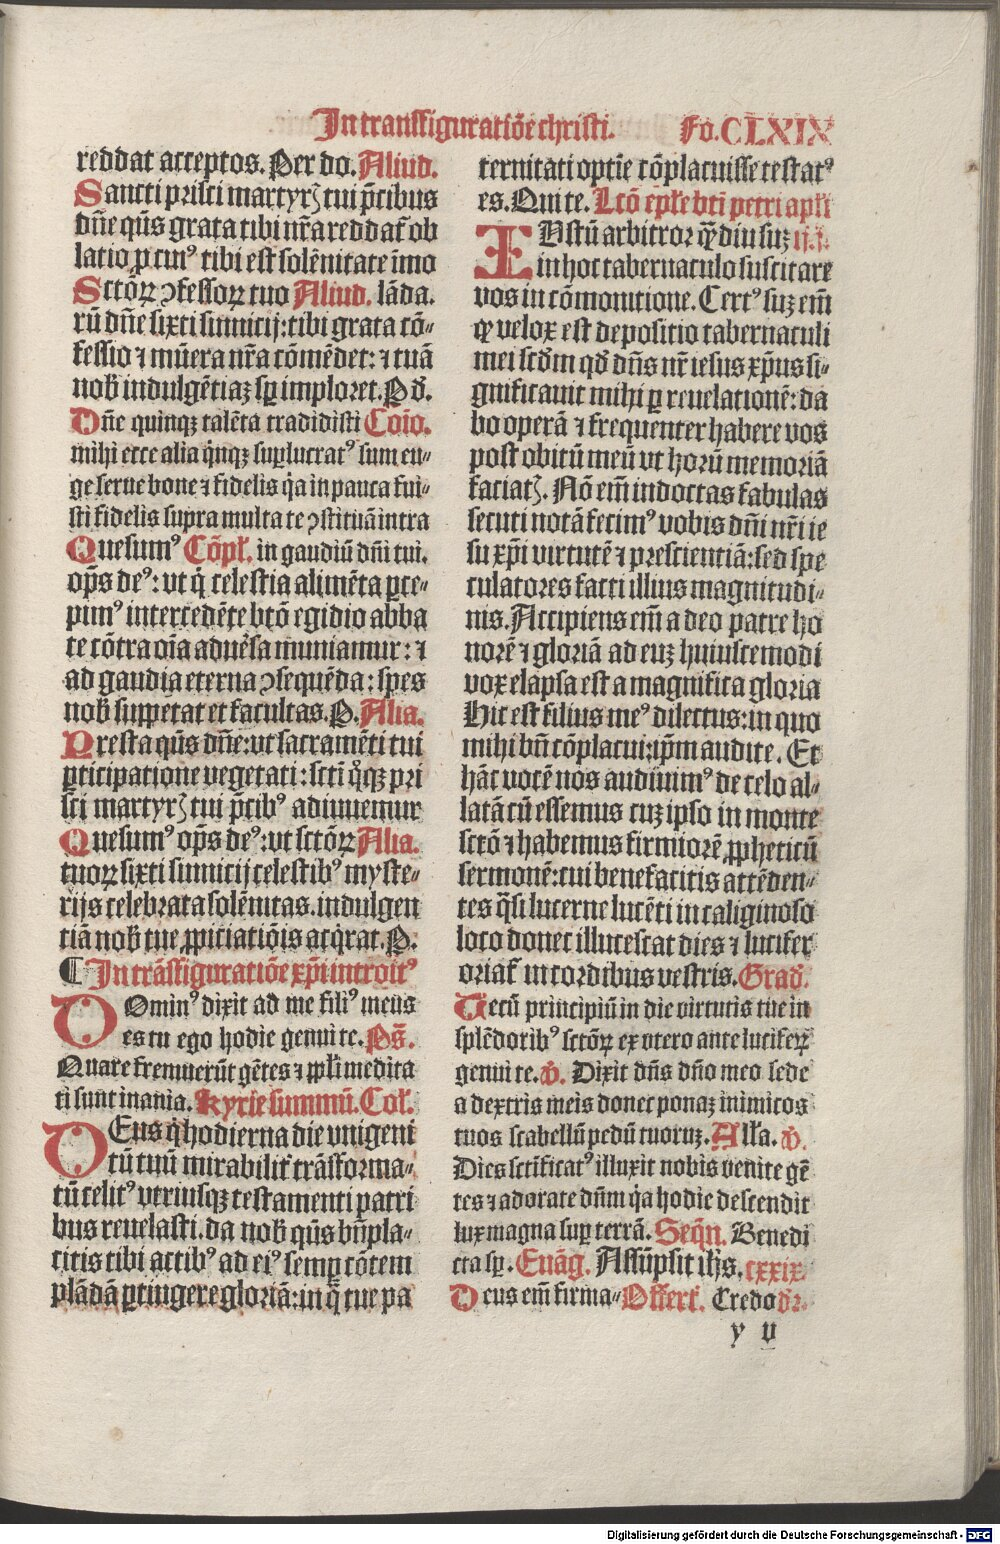 In transfiguratiōe christi. Fo. CLXIX
reddat acceptos. Per do. Aliud.
Sancti prisci martyrꝫ tui p̄cibus
dn̄e qūs grata tibi nr̄a reddat̄ ob
latio ꝓ cuiꝰ tibi est solēnitate īmo
Sctōꝝ ꝯfessoꝝ tuo Aliud. lāda.
rū dn̄e sixti sinnicij: tibi grata cō⸗
fessio ⁊ mūera nr̄a cōmēdet: ⁊ tuā
nob̄ indulgētiaꝫ sꝑ imploret. P d̄.
Dn̄e quinqꝫ talēta tradidisti Cōio.
mihi ecce alia q̇nqꝫ suꝑlucratꝰ sum eu⸗
ge serue bone ⁊ fidelis q̇a in pauca fui⸗
sti fidelis supra multa te ꝯstituā intra
Quesumꝰ Cōpl̄. in gaudiū dn̄i tui.
op̄s deꝰ: vt q̇ celestia alimēta ꝑce⸗
pimꝰ intercedēte btō egidio abba
te cōtra oīa aduēsa muniamur: ⁊
ad gaudia eterna ꝯsequēda: spes
nob̄ suppetat et facultas. P. Alia.
Presta qūs dn̄e: vt sacramēti tui
ꝑticipatione vegetati: scti q̊qꝫ pri
sci martyrꝫ tui p̄cibꝰ adiuuemur
Quesumꝰ op̄s deꝰ: vt sctōꝝ Alia.
tuoꝝ sixti sinnicij celestibꝰ myste⸗
rijs celebrata solēnitas. indulgen
tiā nob̄ tue ꝓpiciatiōis acq̇rat. P.
¶ In trāsfiguratiōe xp̄i introitꝰ
Dominꝰ dixit ad me filiꝰ meus
es tu ego hodie genui te. Ps̄.
Quare fremuerūt gētes ⁊ ppl̄i medita
ti sunt inania. Kyrie summū. Col̄.
Deus q̇ hodierna die vnigeni
tū tuū mirabilit̄ trāsforma⸗
tū celitꝰ vtriusqꝫ testamenti patri
bus reuelasti. da nob̄ qūs bn̄pla⸗
citis tibi actibꝰ ad eiꝰ semꝑ cōtem
plādā ꝑtingere gloriā: in q̄ tue pa
ternitati optīe cōplacuisse testarꝰ
es. Qui te. Lctō ep̄le bt̄i petri apl̄i
Iustū arbitror qᷓdiu suꝫ ij.j.
in hoc tabernaculo suscitare
vos in cōmonitione. Certꝰ suꝫ em̄
ꝙ velox est depositio tabernaculi
mei scd̄m qd̄ dn̄s nr̄ iesus xp̄us si⸗
gnificauit mihi ꝑ reuelationē: da
bo operā ⁊ frequenter habere vos
post obitū meū vt horū memoriā
faciatꝫ. Nō em̄ indoctas fabulas
secuti notā fecimꝰ vobis dn̄i nr̄i ie
su xp̄i virtutē ⁊ prescientiā: sed spe
culatores facti illius magnitudi⸗
nis. Accipiens em̄ a deo patre ho
norē ⁊ gloriā ad euꝫ huiuscemodi
vox elapsa est a magnifica gloria
Hic est filius meꝰ dilectus: in quo
mihi bn̄ cōplacui: ip̄m audite. Et
hāc vocē nos audiuimꝰ de celo al⸗
latā cū essemus cuꝫ ipso in monte
sctō ⁊ habemus firmiorē ꝓpheticū
sermonē: cui benefacitis attēden⸗
tes q̄si lucerne lucēti in caliginoso
loco donec illucescat dies ⁊ lucifer
oriat̄ in cordibus vestris. Grad̄.
Tecū principiū in die virtutis tue in
splēdoribꝰ sctōꝝ ex vtero ante luciferꝝ
genui te. v̄. Dixit dn̄s dn̄o meo sede
a dextris meis donec ponaꝫ inimicos
tuos scabellū pedū tuoruꝫ. All̄a. v̄.
Dies sctīficatꝰ illuxit nobis venite gē
tes ⁊ adorate dn̄m q̇a hodie descendit
lux magna suꝑ terrā. Seqn̄. Benedi
cta sꝑ. Euāg. Assūpsit ih̄s. cxxix.
Deus em̄ firma⸗ Offert̄. Credo d̄r.
y v
Digitalisierung gefördert durch die Deutsche Forschungsgemeinschaft - DFG